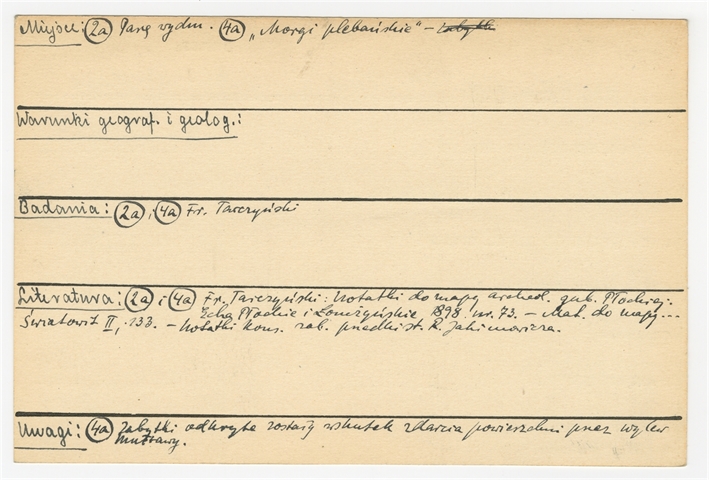 Miejsce: 2a Parę wydm. 4a „Morgi plebańskie" – zabytki
Warunki geograf. i geolog.:
Badania: 2a i 4a Fr. Tarczyński
Literatura: 2a i 4a Fr. Tarczyński: Notatki do mapy archeol. gub. Płockiej.
Echa Płockie i Łomżyńskie 1898. nr. 73. – Mat. do mapy...
Światowit II, 133. – Notatki kons. zab. przedhist. R. Jakimowicza.
Uwagi: 4a Zabytki odkryte zostały wskutek zdarcia powierzchni przez wylew